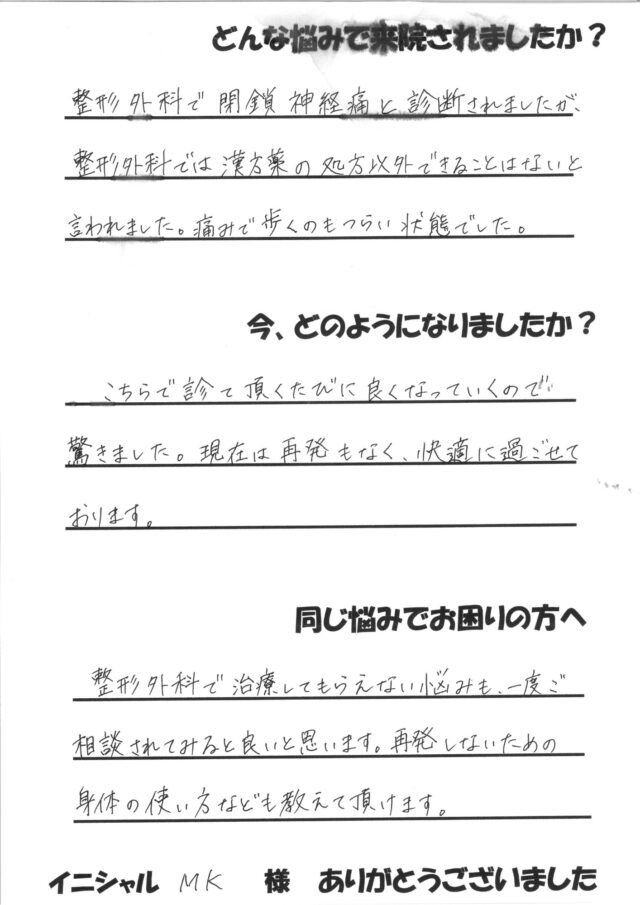 どんな悩みで来院されましたか？
整形外科で閉鎖神経痛と診断されましたが、
整形外科では漢方薬の処方以外できることはないと
言われました。痛みで歩くのもつらい状態でした。
今、どのようになりましたか？
こちらで診て頂くたびに良くなっていくので
驚きました。現在は再発もなく、快適に過ごせて
おります。
同じ悩みでお困りの方へ
整形外科で治療してもらえない悩みも、一度ご
相談されてみると良いと思います。再発しないための
身体の使い方なども教えて頂けます。
イニシャル MK 様 ありがとうございました